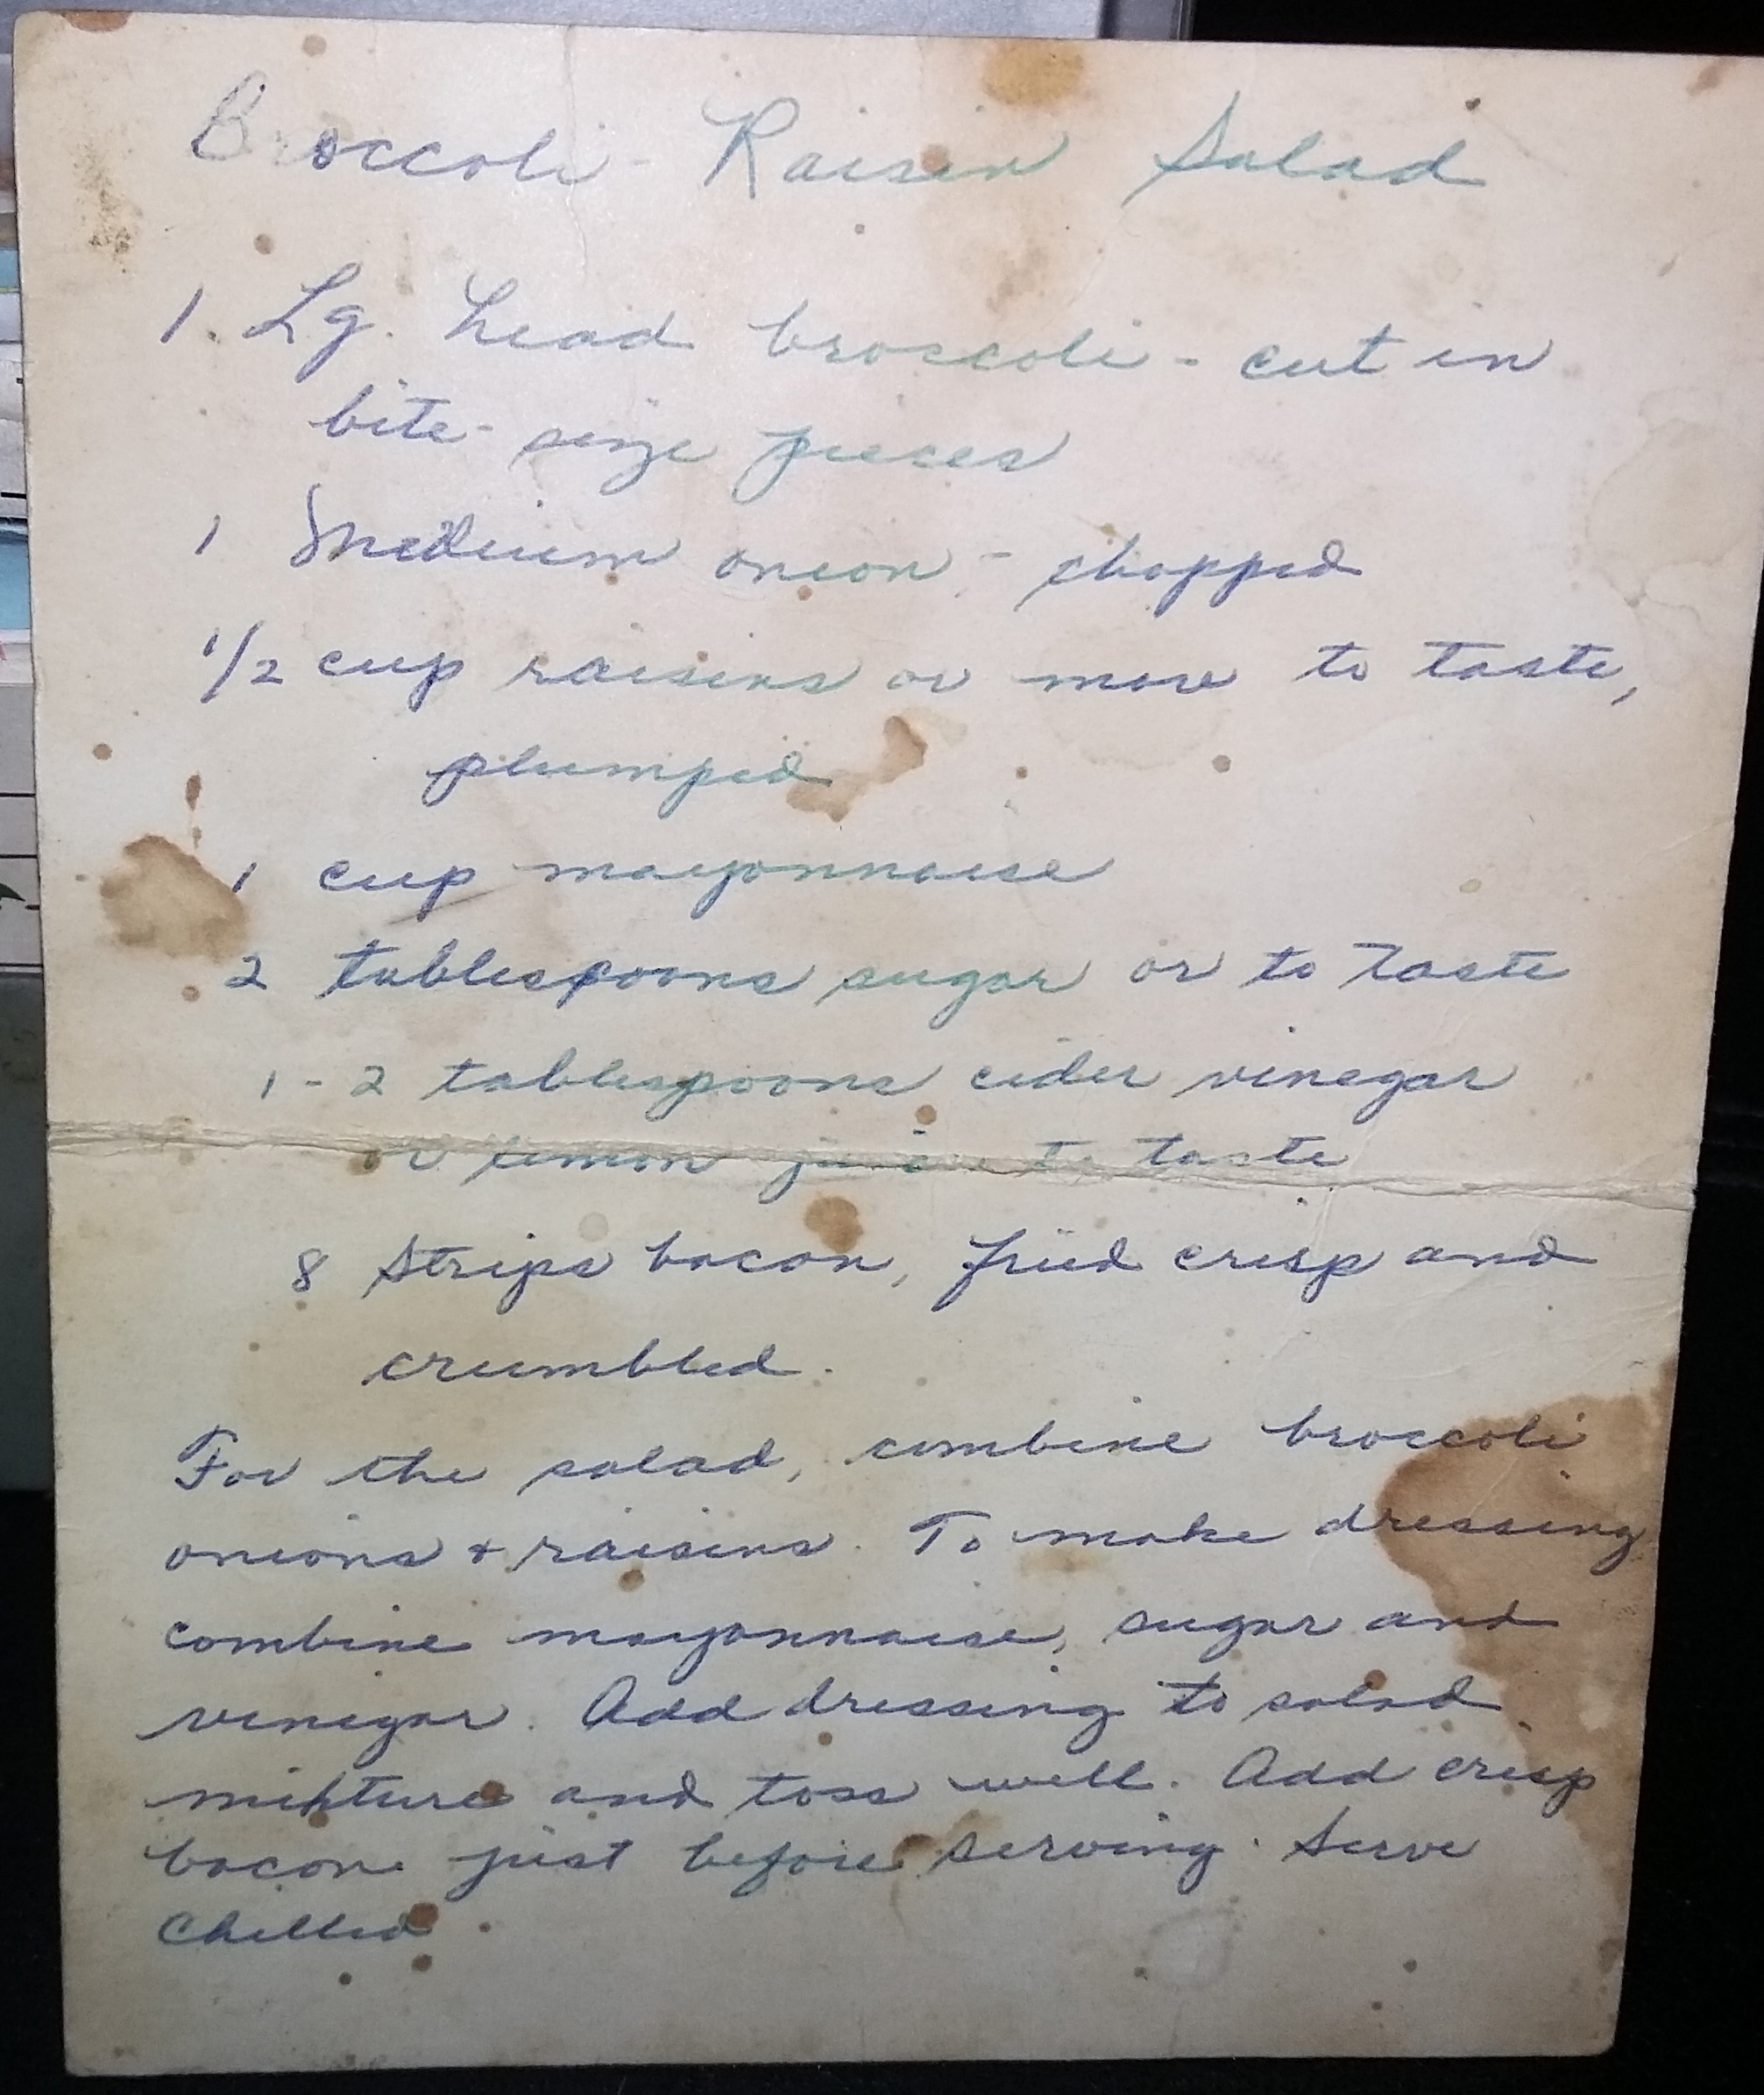 Broccoli - Raisin Salad
1. Lg. head broccoli - cut in
bite-size pieces
1 Medium onion - chopped
1/2 cup raisins or more to taste,
plumped
1 cup mayonnaise
2 tablespoons sugar or to taste
1-2 tablespoons cider vinegar
or lemon juice to taste
8 strips bacon, fried crisp and
crumbled.
For the salad, combine broccoli
onions + raisins. To make dressing
combine mayonnaise, sugar and
vinegar. Add dressing to salad
mixture and toss well. Add crisp
bacon just before serving. Serve
Chilled.